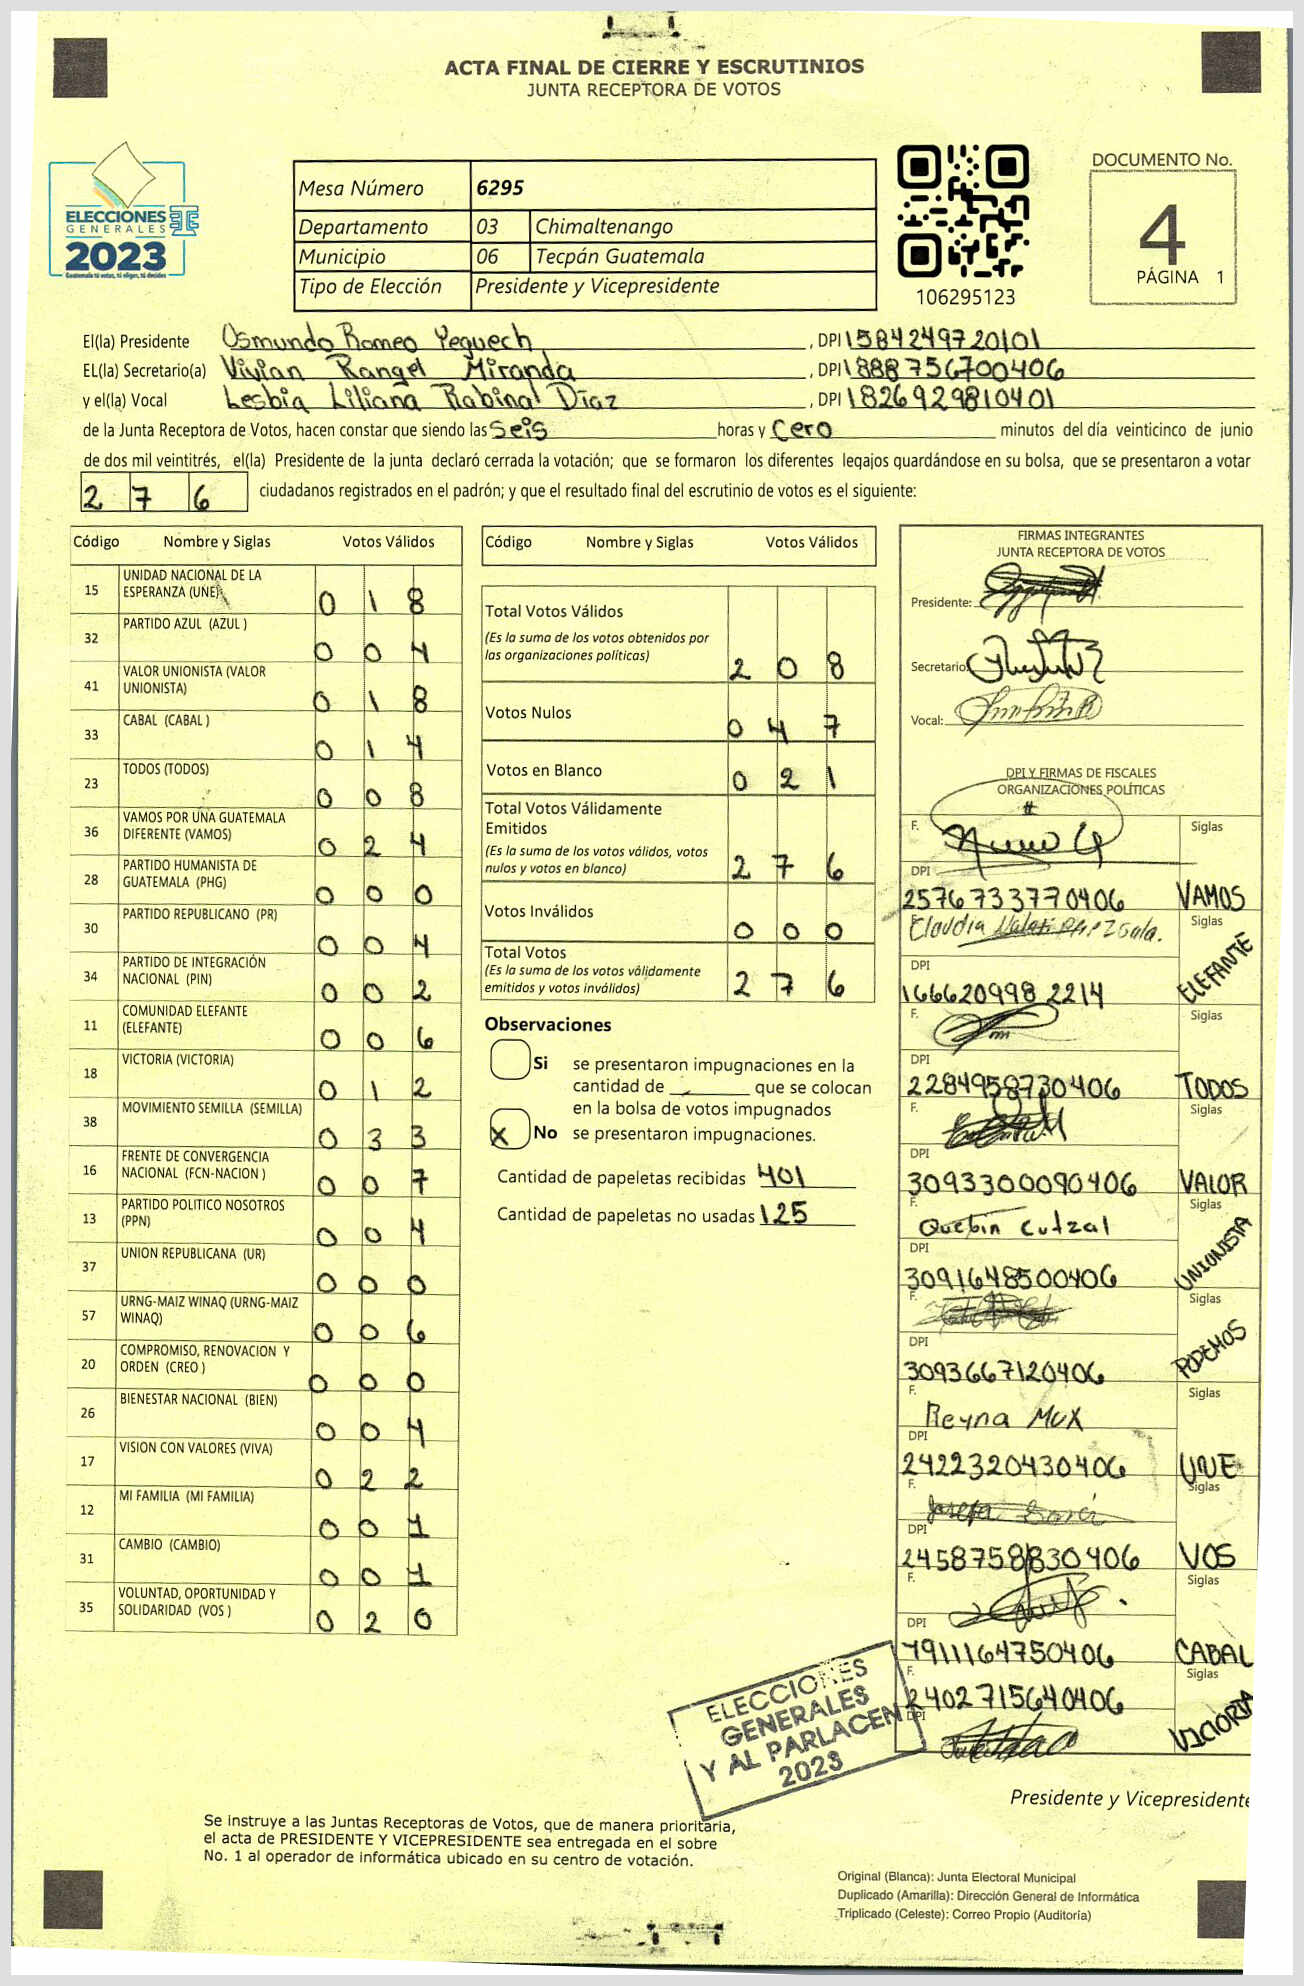 ACTA FINAL DE CIERRE Y ESCRUTINIOS
JUNTA RECEPTORA DE VOTOS
ELECCIONES
GENERALES
2023
Guatemala tú votas, tú eliges, tú decides
Mesa Número 6295
Departamento 03 Chimaltenango
Municipio 06 Tecpán Guatemala
Tipo de Elección Presidente y Vicepresidente
106295123
DOCUMENTO No.
4
PÁGINA 1
El(la) Presidente Osmundo Romeo Yeguech, DPI 1584249720101
EL(la) Secretario(a) Vivian Rangel Miranda, DPI 1888756700406
y el(la) Vocal Lesbia Liliana Rabinal Díaz, DPI 1826929810401
de la Junta Receptora de Votos, hacen constar que siendo las Seis horas y Cero minutos del día veinticinco de junio
de dos mil veintitrés, el(la) Presidente de la junta declaró cerrada la votación; que se formaron los diferentes legajos guardándose en su bolsa, que se presentaron a votar
2 7 6 ciudadanos registrados en el padrón; y que el resultado final del escrutinio de votos es el siguiente:
Código Nombre y Siglas Votos Válidos
15 UNIDAD NACIONAL DE LA
ESPERANZA (UNE) 0 1 8
32 PARTIDO AZUL (AZUL ) 0 0 4
41 VALOR UNIONISTA (VALOR
UNIONISTA) 0 1 8
33 CABAL (CABAL ) 0 1 4
23 TODOS (TODOS) 0 0 8
36 VAMOS POR UNA GUATEMALA
DIFERENTE (VAMOS) 0 2 4
28 PARTIDO HUMANISTA DE
GUATEMALA (PHG) 0 0 0
30 PARTIDO REPUBLICANO (PR) 0 0 4
34 PARTIDO DE INTEGRACIÓN
NACIONAL (PIN) 0 0 2
11 COMUNIDAD ELEFANTE
(ELEFANTE) 0 0 6
18 VICTORIA (VICTORIA) 0 1 2
38 MOVIMIENTO SEMILLA (SEMILLA) 0 3 3
16 FRENTE DE CONVERGENCIA
NACIONAL (FCN-NACION ) 0 0 7
13 PARTIDO POLITICO NOSOTROS
(PPN) 0 0 4
37 UNION REPUBLICANA (UR) 0 0 0
57 URNG-MAIZ WINAQ (URNG-MAIZ
WINAQ) 0 0 6
20 COMPROMISO, RENOVACION Y
ORDEN (CREO ) 0 0 0
26 BIENESTAR NACIONAL (BIEN) 0 0 4
17 VISION CON VALORES (VIVA) 0 2 2
12 MI FAMILIA (MI FAMILIA) 0 0 1
31 CAMBIO (CAMBIO) 0 0 1
35 VOLUNTAD, OPORTUNIDAD Y
SOLIDARIDAD (VOS ) 0 2 0
Código Nombre y Siglas Votos Válidos
Total Votos Válidos
(Es la suma de los votos obtenidos por
las organizaciones políticas) 2 0 8
Votos Nulos 0 4 7
Votos en Blanco 0 2 1
Total Votos Válidamente
Emitidos
(Es la suma de los votos válidos, votos
nulos y votos en blanco) 2 7 6
Votos Inválidos 0 0 0
Total Votos
(Es la suma de los votos válidamente
emitidos y votos inválidos) 2 7 6
Observaciones
Si se presentaron impugnaciones en la
cantidad de que se colocan
en la bolsa de votos impugnados
X No se presentaron impugnaciones.
Cantidad de papeletas recibidas 401
Cantidad de papeletas no usadas 125
FIRMAS INTEGRANTES
JUNTA RECEPTORA DE VOTOS
Presidente:
Secretario:
Vocal:
DPI Y FIRMAS DE FISCALES
ORGANIZACIONES POLÍTICAS
F. Siglas
DPI
2576733770406 VAMOS
F. Claudia Siglas
DPI
166620998 2214 ELEFANTE
F. Siglas
DPI
2284958730406 TODOS
F. Siglas
DPI
3093300090406 VALOR
F. Quebin Cutzal Siglas
DPI
3091648500406 UNIONISTA
F. Siglas
DPI
3093667120406 PODEMOS
F. Reyna Mux Siglas
DPI
2422320430406 UNE
F. Josefa Siglas
DPI
2458758830406 VOS
F. Siglas
DPI
7911164750406 CABAL
F. Siglas
2402715640406 VICTORIA
DPI
ELECCIONES
GENERALES
Y AL PARLACEN
2023
Presidente y Vicepresidente
Se instruye a las Juntas Receptoras de Votos, que de manera prioritaria,
el acta de PRESIDENTE Y VICEPRESIDENTE sea entregada en el sobre
No. 1 al operador de informática ubicado en su centro de votación.
Original (Blanca): Junta Electoral Municipal
Duplicado (Amarilla): Dirección General de Informática
Triplicado (Celeste): Correo Propio (Auditoría)